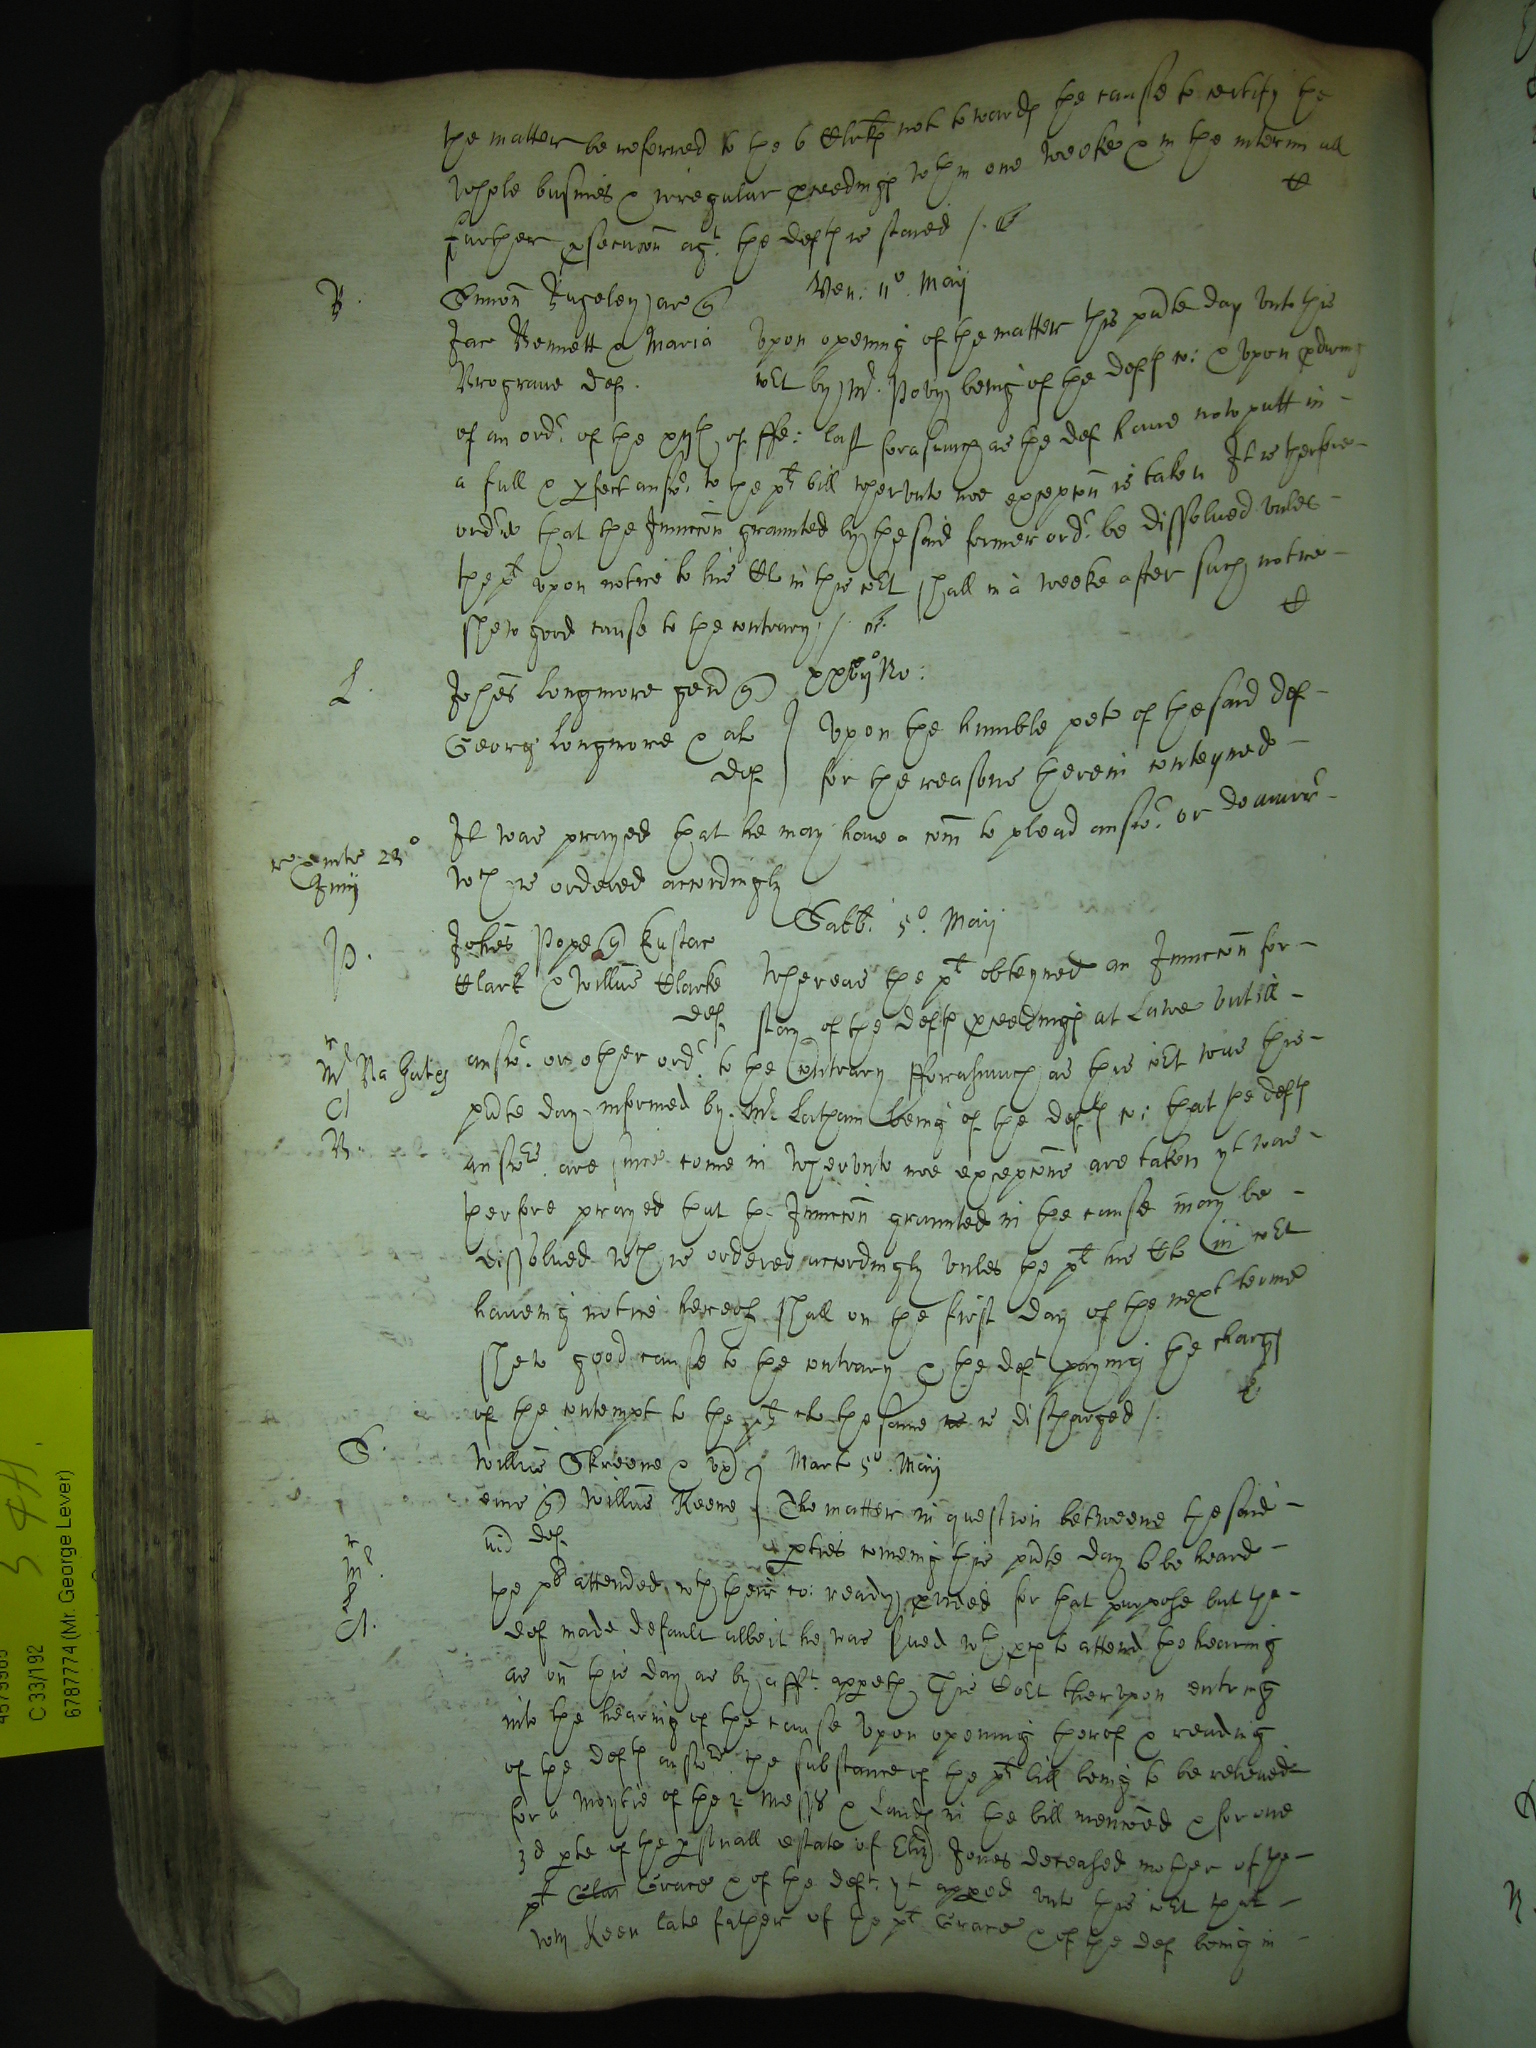 the matter be referred to the 6 Clrks not towards the cause to certify the
whole busines & irregular pceedings wthin one weeke & in the interim all
further psecucon agt. the defts is staied /.
B.
Simon Rugeley ar q
Ven. 11o. Maij
Jac Bennett & Maria Upon opening of the matter this pnte day unto this
Brograue def. Cot by Mr. Povy being of the defts co: & upon pduceing
of an ordr. of the xijth of ffe: last forasmuch as the def haue now putt in
a full & pfect answr. to the pts bill wherunto noe excepcon is taken It is therfore
ordred that the Iniuccon graunted by the said former ordr. be dissolued unles
the pt upon notice to his Cl in this Cot shall in a weeke after such notice
shew good cause to the contrary /.
L.
Johes Longmore gen q
No:
Georg Longmore & al Upon the humble peto of the said def
def for the reasons therein conteyned
It was prayed that he may haue a com to plead answr. or demurr
23o
Junij
wch is ordered accordingly
Sabb. 5o. Maij
P.
Johes Pope q Eustac
Clark & Willus Clarke Whereas the pt obteyned an Iniuccon for
def stay of the defts pceedings at Lawe untill
r
Mr
answr. or other ordr. to the contrary fforasmuch as this Cot was this
pnte day informed by Mr. Latham being of the defts co: that the defts
B.
answrs. are since come in wherunto noe excepcons are taken yt was
therfore prayed that th Iniuccon graunted in the cause may be
dissolued wch is ordered accordingly unles the pt his Cl in Cot
haueing notice hereof shall on the first day of the next terme
shew good cause to the contrary & the deft paying the chargs
of the contempt to the pts the same is discharged /.
S.
Willus Skreene & ux
Mart 5o. Maij
eius q Willus Keene The matter in question betweene the said
def pties comeing this pnte day to be heard
r
Mr.
the pts attended wth their co: ready pvided for that purpose but the
def made default albeit he was sued wth pces to attend the hearing
as on this day as by afft. appeth This Cot therupon entring
into the hearing of the cause upon opening therof & reading
of the defts answr. the substance of the pts bill being to be releiued
for a moytie of the 2 mess & Lands in the bill menconed & for one
3d pte of the psonall estate of Eliz Jones deceased mother of the
pt Grace & of the deft. yt apped unto this Cot that
Wm Keen late father of the pt Grace & of the def being in
C 33/192
6787774 (Mr. George Lever)